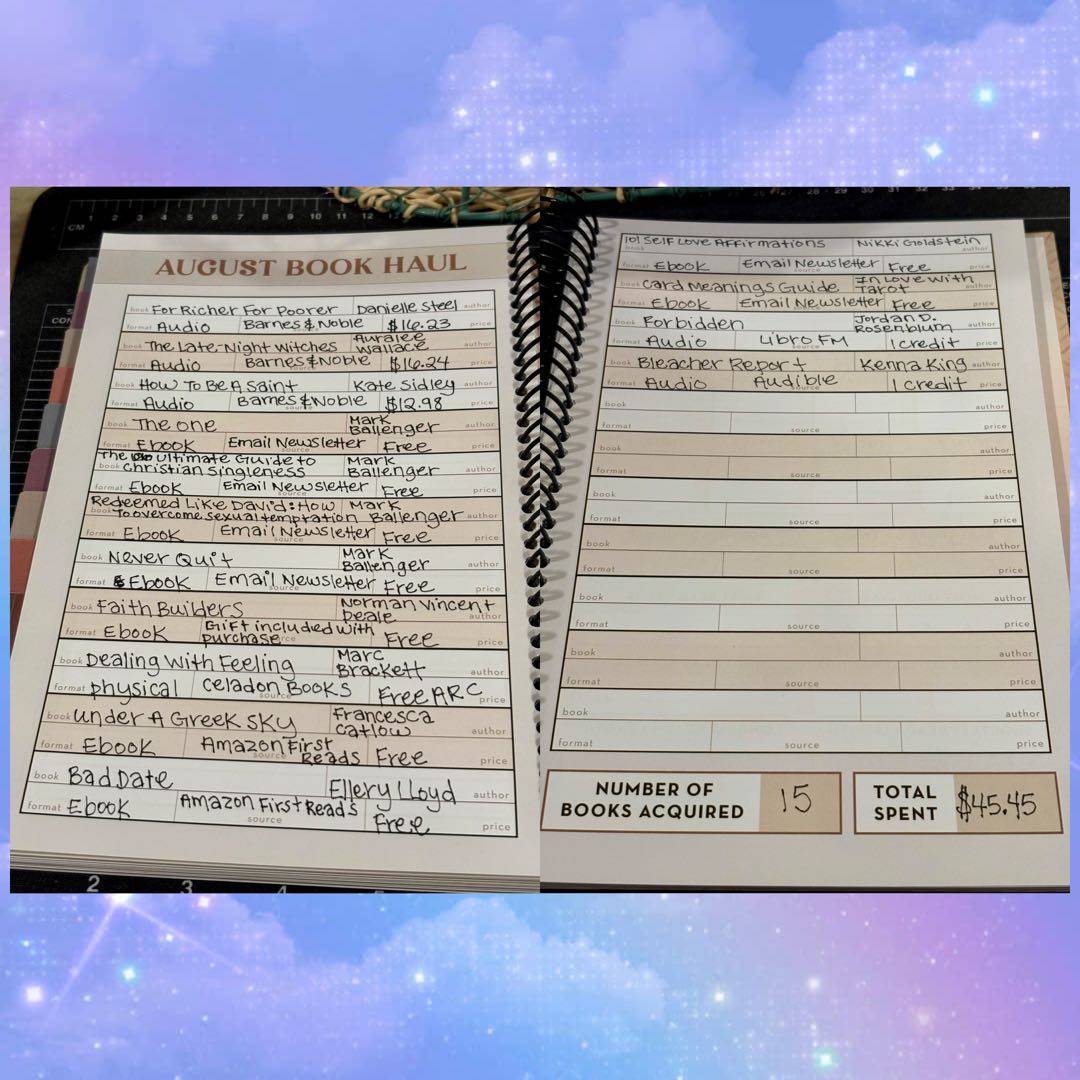 AUGUST BOOK HAUL
book For Richer For Poorer Danielle Steel author
format Audio Barnes & Noble $16.23 price
book The Late-Night Witches Auralee Wallace
format Audio Barnes & Noble $16.24 price
book How To Be A Saint Kate Sidley author
format Audio Barnes & Noble source $12.98 price
book The one Mark Ballenger author
format Ebook Email Newsletter Free price
The ultimate Guide to Mark
book Christian singleness Ballenger author
format Ebook Email Newsletter Free price
Redeemed Like David: How Mark
book To overcome sexual temptation Ballenger author
format Ebook Email Newsletter source Free price
book Never Quit Mark Ballenger author
format Ebook Email Newsletter source Free price
book Faith Builders Norman Vincent Peale author
format Ebook Gift included with purchase Free price
book Dealing With Feeling Marc Brackett author
format physical Celadon Books source Free ARC price
book under A Greek sky Francesca Catlow author
format Ebook Amazon First Reads source Free price
book Bad Date Ellery Lloyd author
format Ebook Amazon First Reads source Free price
101 Self Love Affirmations Nikki Goldstein
book author
format Ebook Email Newsletter source Free price
book Card Meanings Guide In Love with Tarot author
format Ebook Email Newsletter source Free price
book Forbidden Jordan D. Rosenblum author
format Audio Libro FM 1 credit price
book Bleacher Report Kenna King author
format Audio Audible source 1 credit price
book author
format source price
book author
format source price
book author
format source price
book author
format source price
book author
format source price
book author
format source price
book author
format source price
NUMBER OF
BOOKS ACQUIRED 15
TOTAL
SPENT $45.45